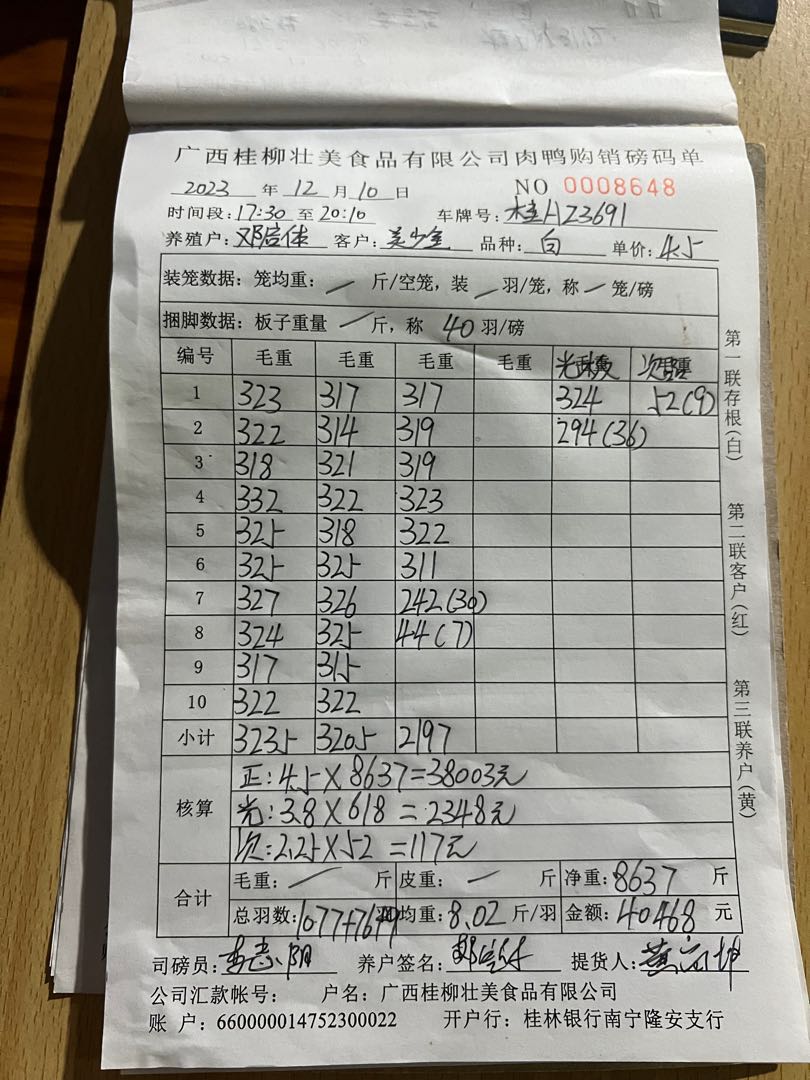 广西桂柳壮美食品有限公司肉鸭购销磅码单
2023 年 12 月 10 日 NO 0008648
时间段:17:30 至 20:10 车牌号:桂AZ3691
养殖户:邓启体 客户: 品种:白 单价:4.5
装笼数据:笼均重:/ 斤/空笼,装 / 羽/笼,称 / 笼/磅
捆脚数据:板子重量 / 斤,称 40 羽/磅
编号 毛重 毛重 毛重 毛重 光 次
1 323 317 317 324 52(9)
2 322 314 319 294(36)
3 318 321 319
4 332 322 323
5 325 318 322
6 325 325 311
7 327 326 242(30)
8 324 325 44(7)
9 317 315
10 322 322
小计 3235 3205 2197
核算
正:4.5×8637=38003元
光:3.8×618=2348元
次:2.25×52=117元
合计
毛重:/ 斤 皮重:/ 斤 净重:8637 斤
总羽数:1077+76+9 均重:8.02 斤/羽 金额:40468 元
司磅员: 养户签名: 提货人:
公司汇款帐号: 户名:广西桂柳壮美食品有限公司
账 户:660000014752300022 开户行:桂林银行南宁隆安支行
第一联存根(白)
第二联客户(红)
第三联养户(黄)